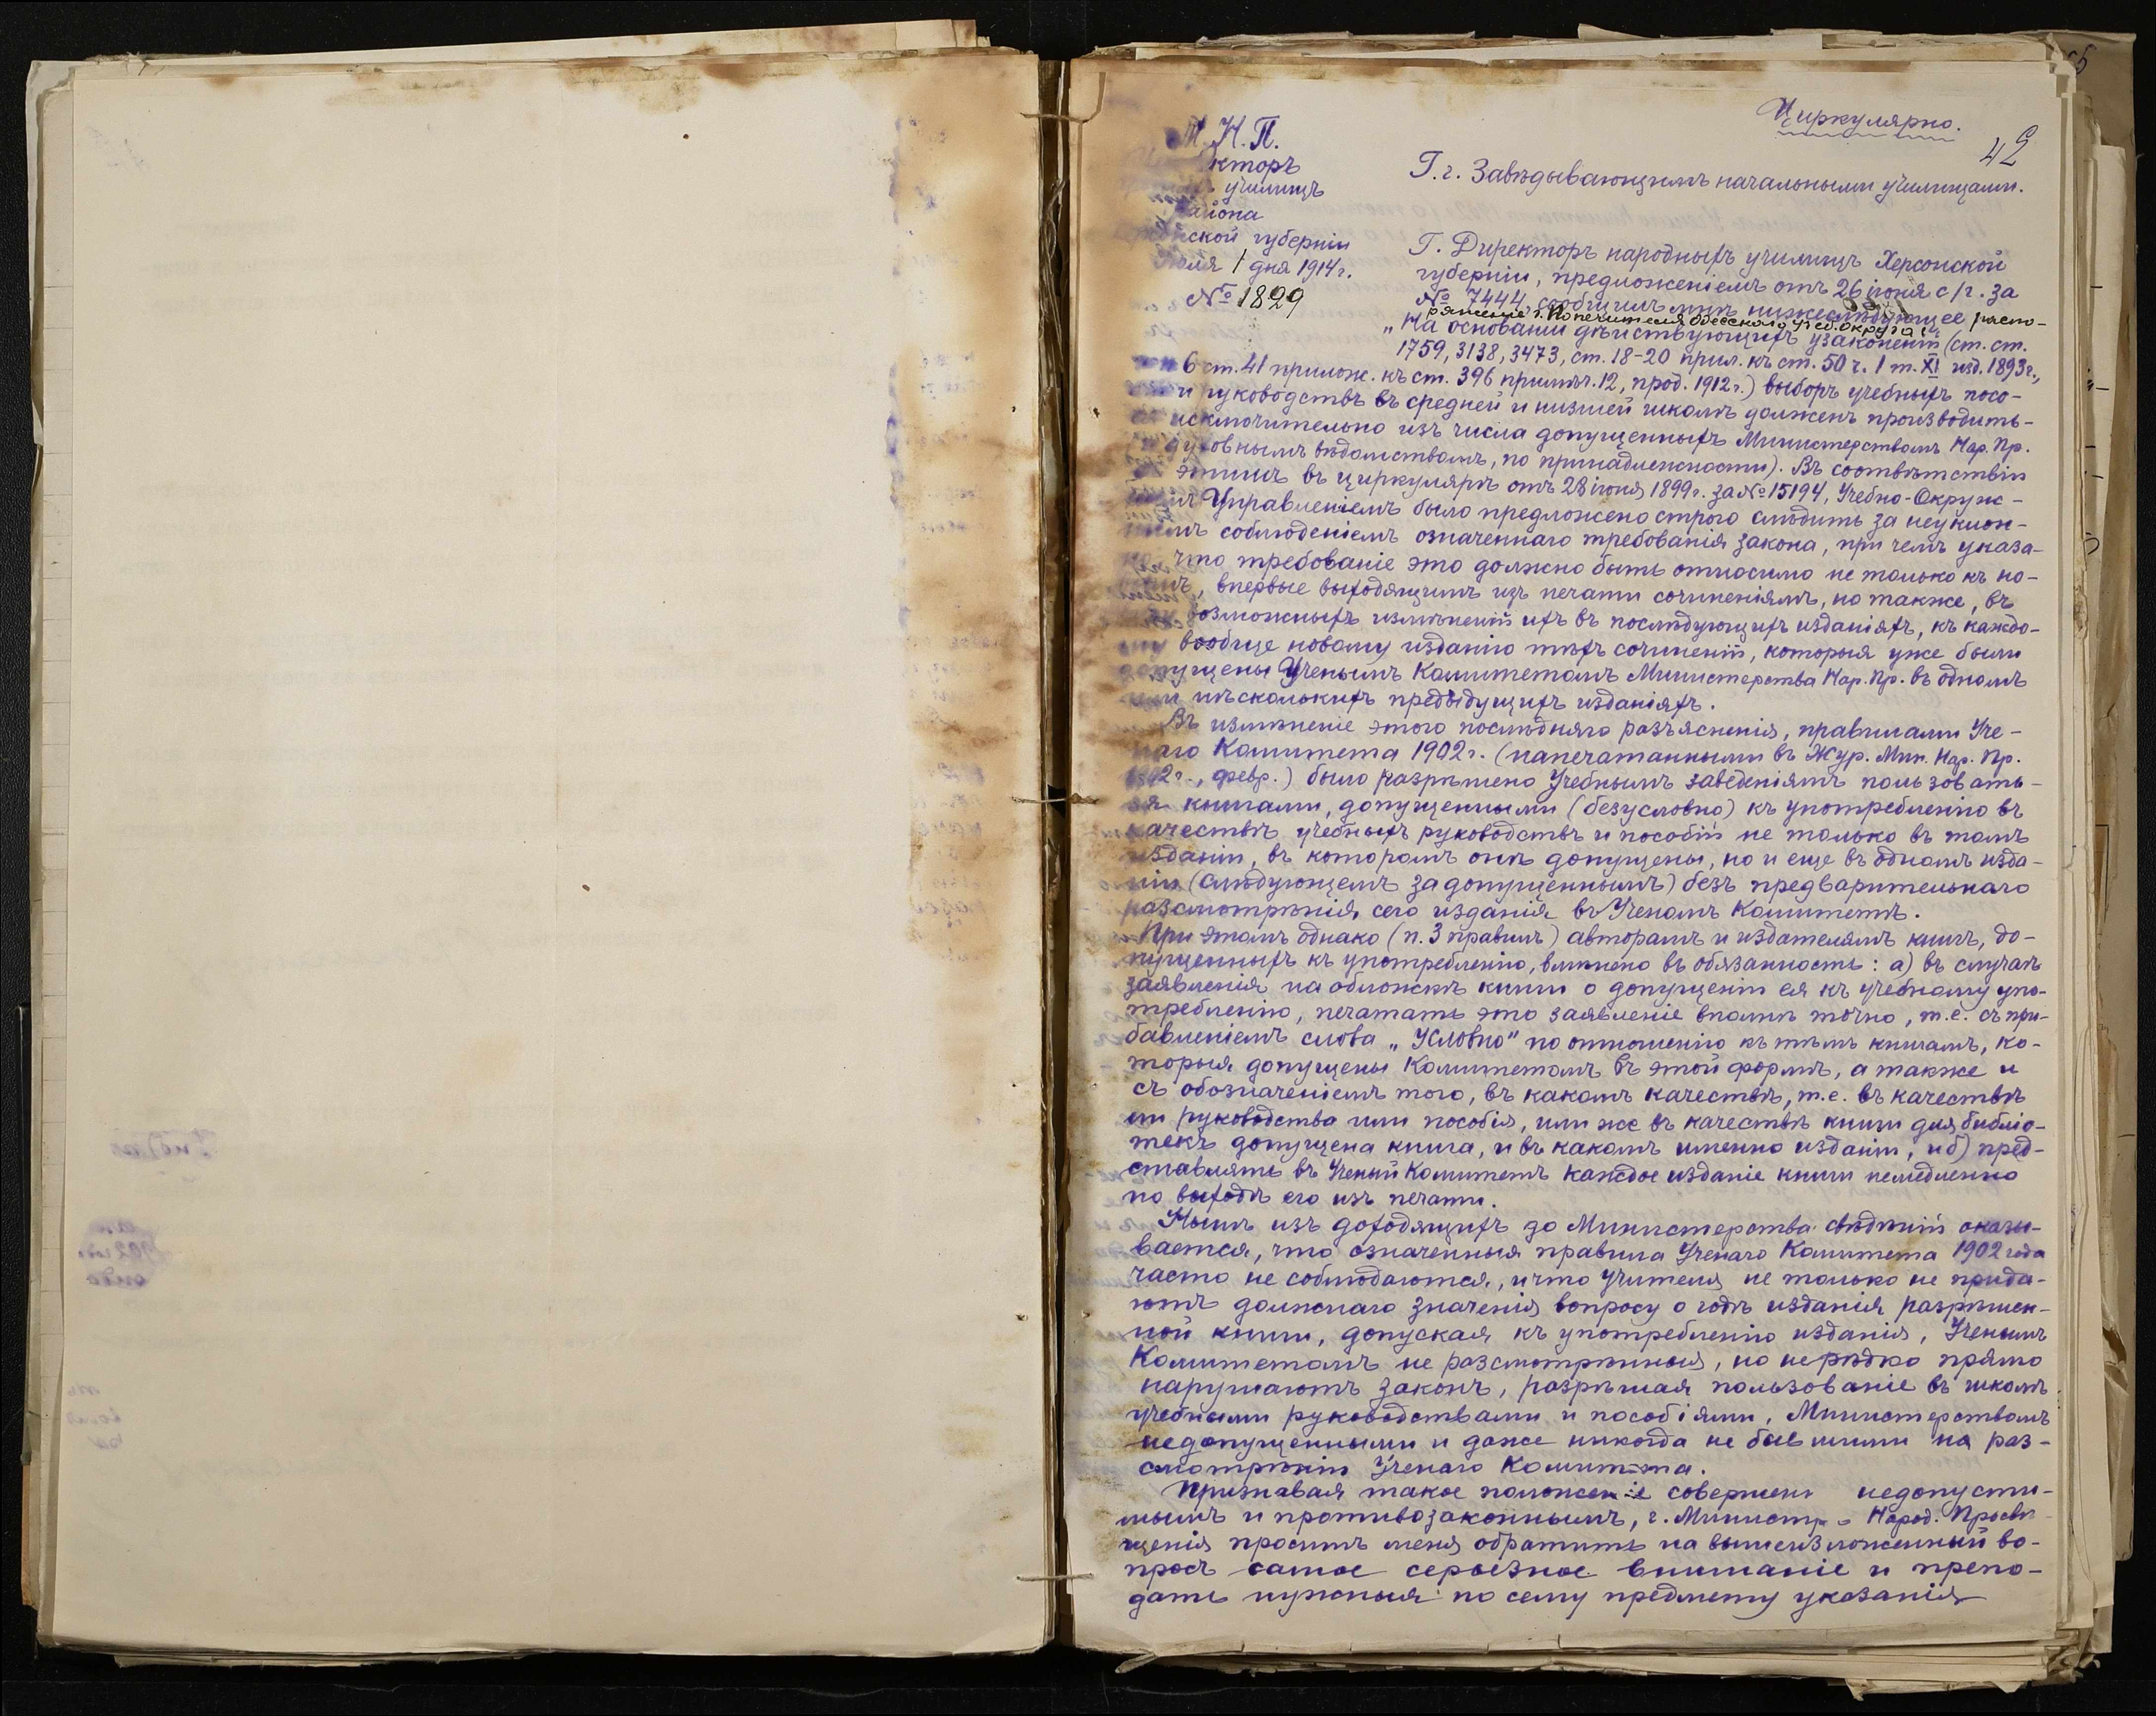 Циркулярно.
42
М. Н. П.
кторъ
училищъ
района
ской губерніи
1 дня 1914 г.
№ 1899
Г.г. Завѣдывающимъ начальными училищами.
Г. Директоръ народныхъ училищъ Херсонской
губерніи, предложеніемъ отъ 26 іюня с/г. за
№ 7444, сообщилъ мнѣ нижеслѣдующее распо-
ряженіе г. Попечителя Одесскаго Учеб. Округа:
„На основаніи дѣйствующихъ узаконеній (ст. ст.
1759, 3138, 3473, ст. 18-20 прил. къ ст. 50 ч. 1 т. XI изд. 1893 г.,
6 ст. 41 прилож. къ ст. 396 примѣч. 12, прод. 1912 г.) выборъ учебныхъ посо-
и руководствъ въ средней и низшей школѣ долженъ производить-
исключительно изъ числа допущенныхъ Министерствомъ Нар. Пр.
духовнымъ вѣдомствомъ, по принадлежности). Въ соотвѣтствіи
этимъ въ циркулярѣ отъ 28 іюня 1899 г. за № 15194, Учебно-Окруж-
Управленіемъ было предложено строго слѣдить за неуклон-
нымъ соблюденіемъ означеннаго требованія закона, при чемъ указа-
что требованіе это должно быть относимо не только къ но-
, впервые выходящимъ изъ печати сочиненіямъ, но также, въ
возможныхъ измѣненій ихъ въ послѣдующихъ изданіяхъ, къ каждо-
му вообще новому изданію тѣхъ сочиненій, которыя уже были
допущены Ученымъ Комитетомъ Министерства Нар. Пр. въ одномъ
или нѣсколькихъ предыдущихъ изданіяхъ.
Въ измѣненіе этого послѣдняго разъясненія, правилами Уче-
наго Комитета 1902 г. (напечатанными въ Жур. Мин. Нар. Пр.
1902 г., февр.) было разрѣшено Учебнымъ заведеніямъ пользовать-
ся книгами, допущенными (безусловно) къ употребленію въ
качествѣ учебныхъ руководствъ и пособій не только въ томъ
изданіи, въ которомъ онѣ допущены, но и еще въ одномъ изда-
ніи (слѣдующемъ за допущеннымъ) безъ предварительнаго
разсмотрѣнія сего изданія въ Ученомъ Комитетѣ.
При этомъ однако (п. 3 правилъ) авторамъ и издателямъ книгъ, до-
пущенныхъ къ употребленію, вмѣнено въ обязанность: а) въ случаѣ
заявленія на обложкѣ книги о допущеніи ея къ учебному упо-
требленію, печатать это заявленіе вполнѣ точно, т.е. съ при-
бавленіемъ слова „Условно" по отношенію къ тѣмъ книгамъ, ко-
торыя допущены Комитетомъ въ этой формѣ, а также и
съ обозначеніемъ того, въ какомъ качествѣ, т.е. въ качествѣ
ли руководства или пособія, или же въ качествѣ книги для библіо-
текъ допущена книга, и въ какомъ именно изданіи, и б) пред-
ставлять въ Ученый Комитетъ каждое изданіе книги немедленно
по выходѣ его изъ печати.
Нынѣ изъ доходящихъ до Министерства свѣдѣній оказы-
вается, что означенныя правила Ученаго Комитета 1902 года
часто не соблюдаются, и что учителя не только не прида-
ютъ должнаго значенія вопросу о годѣ изданія разрѣшен-
ной книги, допуская къ употребленію изданія, Ученымъ
Комитетомъ не разсмотрѣнныя, но нерѣдко прямо
нарушаютъ законъ, разрѣшая пользованіе въ школѣ
учебными руководствами и пособіями, Министерствомъ
недопущенными и даже никогда не бывшими на раз-
смотрѣніи Ученаго Комитета.
Признавая такое положеніе совершенн недопусти-
мымъ и противозаконнымъ, г. Министръ Народ. Просвѣ-
щенія проситъ меня обратить на вышеизложенный во-
просъ самое серьезное вниманіе и препо-
дать нужныя по сему предмету указанія